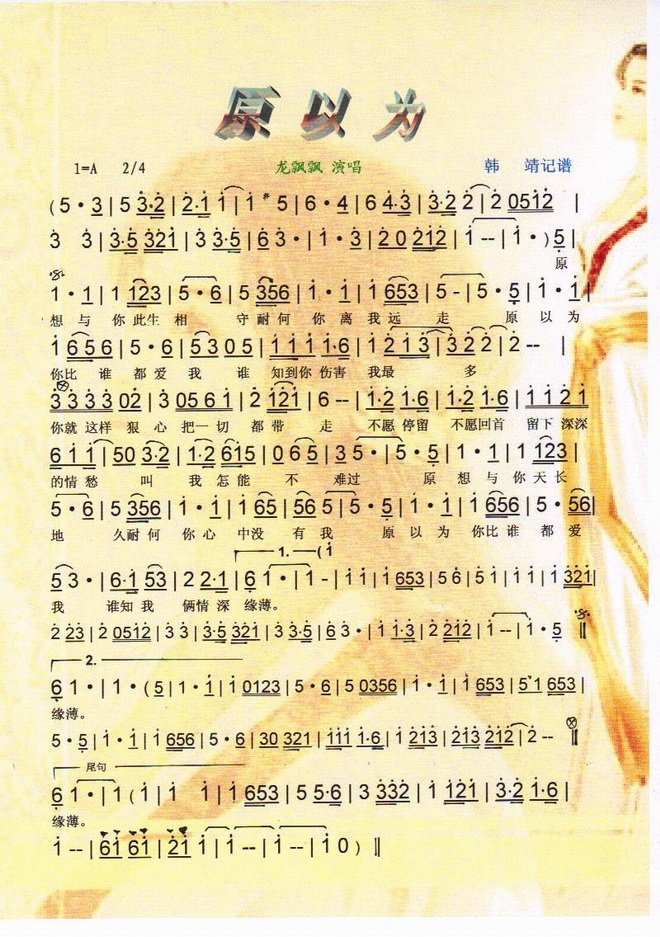 原以为
1=A 2/4 龙飘飘 演唱 韩 靖记谱
(5·3|5 3·2|2·1 1|1 5|6·4|6 4·3|3·2 2|2 0512|
3 3|3·5 321|3 3·5|6 3·|1·3|2 0 212|1--|1·)5|
原
1·1|1 123|5·6|5 356|1·1|1 653|5-|5·5|1·1|
想 与 你 此生 相 守 耐何 你 离 我 远 走 原 以 为
1 656|5·6|53 05|1111 1·6|1 213|3 2 2|2--|
你比 谁 都 爱 我 谁 知到你 伤害 我最 多
3333 02|3 056 1|2 121|6--|1·2 1·6|1·2 1·6|1121
你就 这样 狠 心 把一 切 都 带 走 不愿 停留 不愿回首 留下 深深
611|50 3·2|1·2 615|0 65|35·|5·5|1·1|1 123|
的情 愁 叫 我 怎能 不 难过 原 想 与 你 天长
5·6|5 356|1·1|1 65|56 5|5·5|1·1|1 656|5·56|
地 久耐何 你心 中没 有我 原 以 为 你比 谁 都 爱
1.
53·|6·1 53|2 2·1|6 1·|1-|111|653|56|51|11|321|
我 谁知 我 俩情 深 缘薄。
2 23|2 0512|3 3|3·5 321|3 3·5|6 3·|1 1·3|2 212|1--|1·5
2.
6 1·|1·(5|1·1|1 0123|5·6|5 0356|1·1|1 653|5 1 653|
缘薄。
5·5|1·1|1 656|5·6|30 321|111 1·6|1 213|213 212|2--
尾句
6 1·|1(1|1 1 1|1 653|5 5·6|3 332|1 121|3·2 1·6|
缘薄。
1--|61 61|21 1|1--|1--|10)